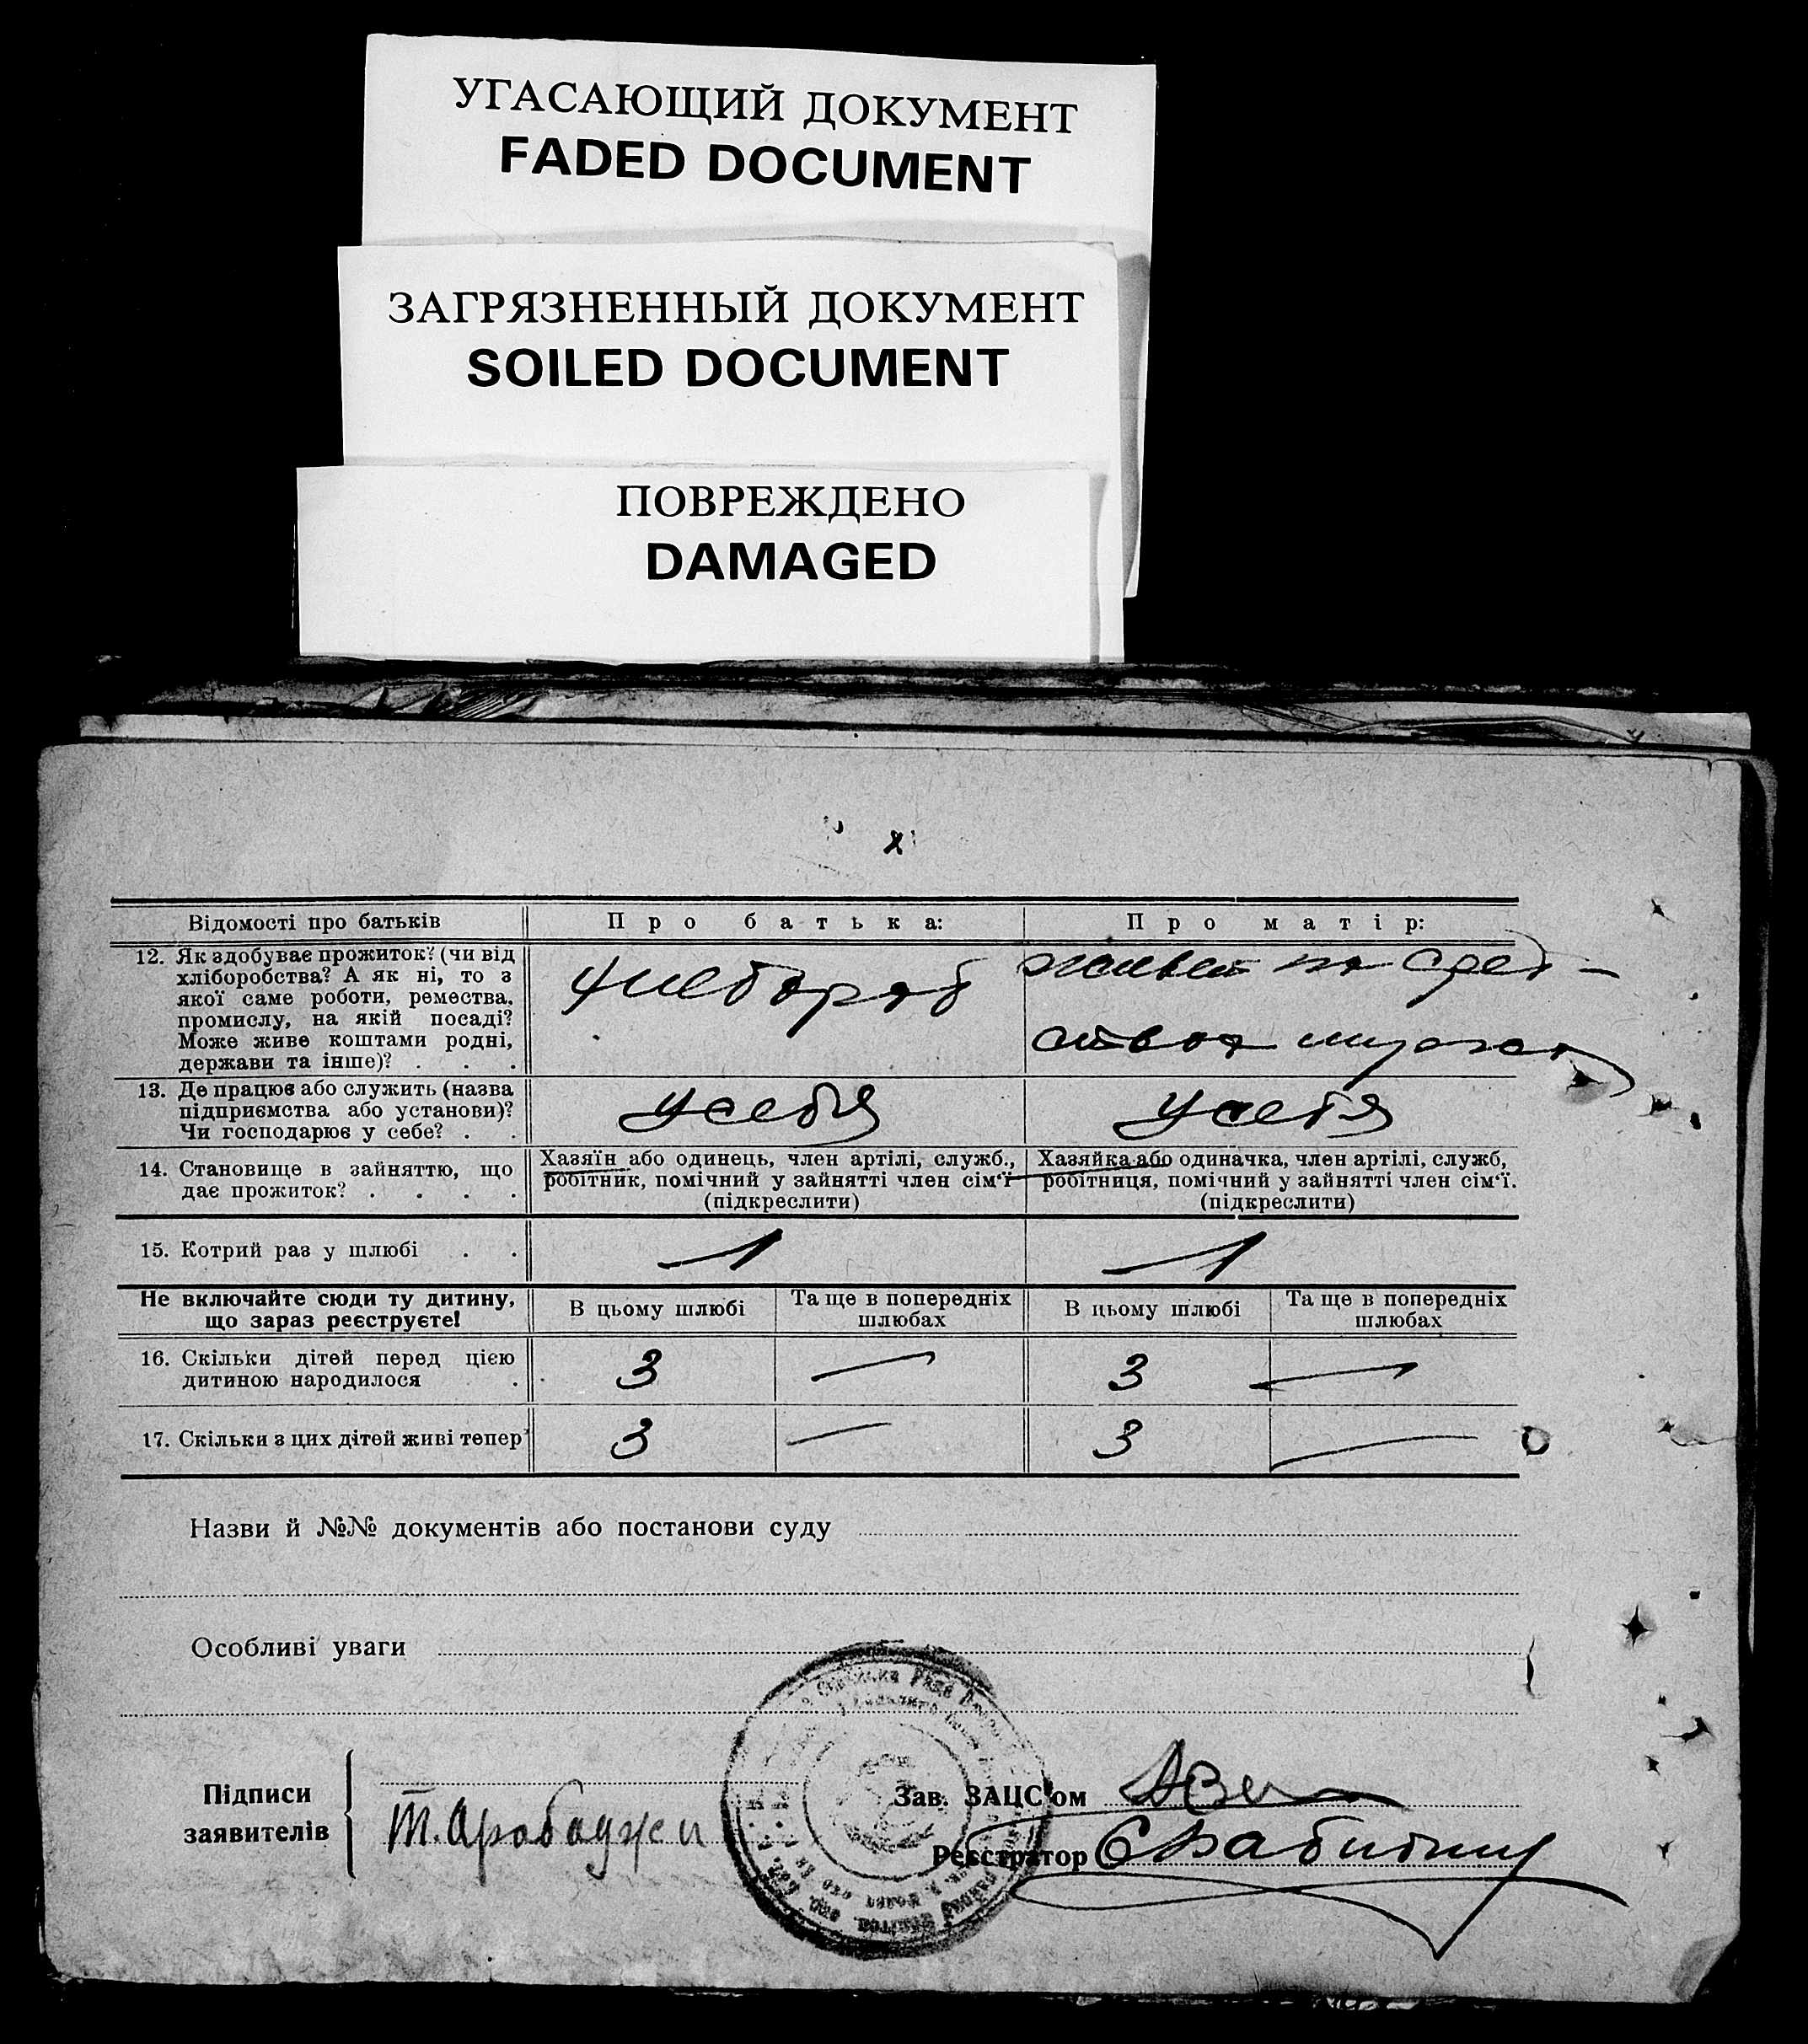 УГАСАЮЩИЙ ДОКУМЕНТ
FADED DOCUMENT
ЗАГРЯЗНЕННЫЙ ДОКУМЕНТ
SOILED DOCUMENT
ПОВРЕЖДЕНО
DAMAGED
Відомості про батьків
Про батька:
Про матір:
12. Як здобуває прожиток? (чи від
хліборобства? А як ні, то з
якої саме роботи, ремества,
промислу, на якій посаді?
Може живе коштами родні,
держави та інше)? . . .
хлебороб
живет на сред-
ства мужа
13. Де працює або служить (назва
підприємства або установи)?
Чи господарює у себе? . .
у себя
у себя
14. Становище в зайняттю, що
дає прожиток? . . . .
Хазяїн або одинець, член артілі, служб.,
робітник, помічний у зайнятті член сім'ї
(підкреслити)
Хазяйка або одиначка, член артілі, служб,
робітниця, помічний у зайнятті член сім'ї.
(підкреслити)
15. Котрий раз у шлюбі . .
1
1
Не включайте сюди ту дитину,
що зараз реєструєте!
В цьому шлюбі
Та ще в попередніх
шлюбах
В цьому шлюбі
Та ще в попередніх
шлюбах
16. Скільки дітей перед цією
дитиною народилося .
3
—
3
—
17. Скільки з цих дітей живі тепер
3
—
3
—
Назви й №№ документів або постанови суду
Особливі уваги
Підписи
заявителів
Т. Арабаджи
Зав. ЗАЦС'ом
Реєстратор